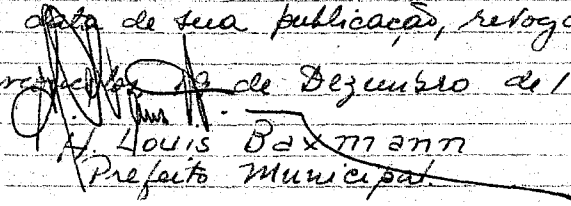 data de sua publicação, revoga
de Dezembro de 1
H. Louis Baxmann
Prefeito Municipal.